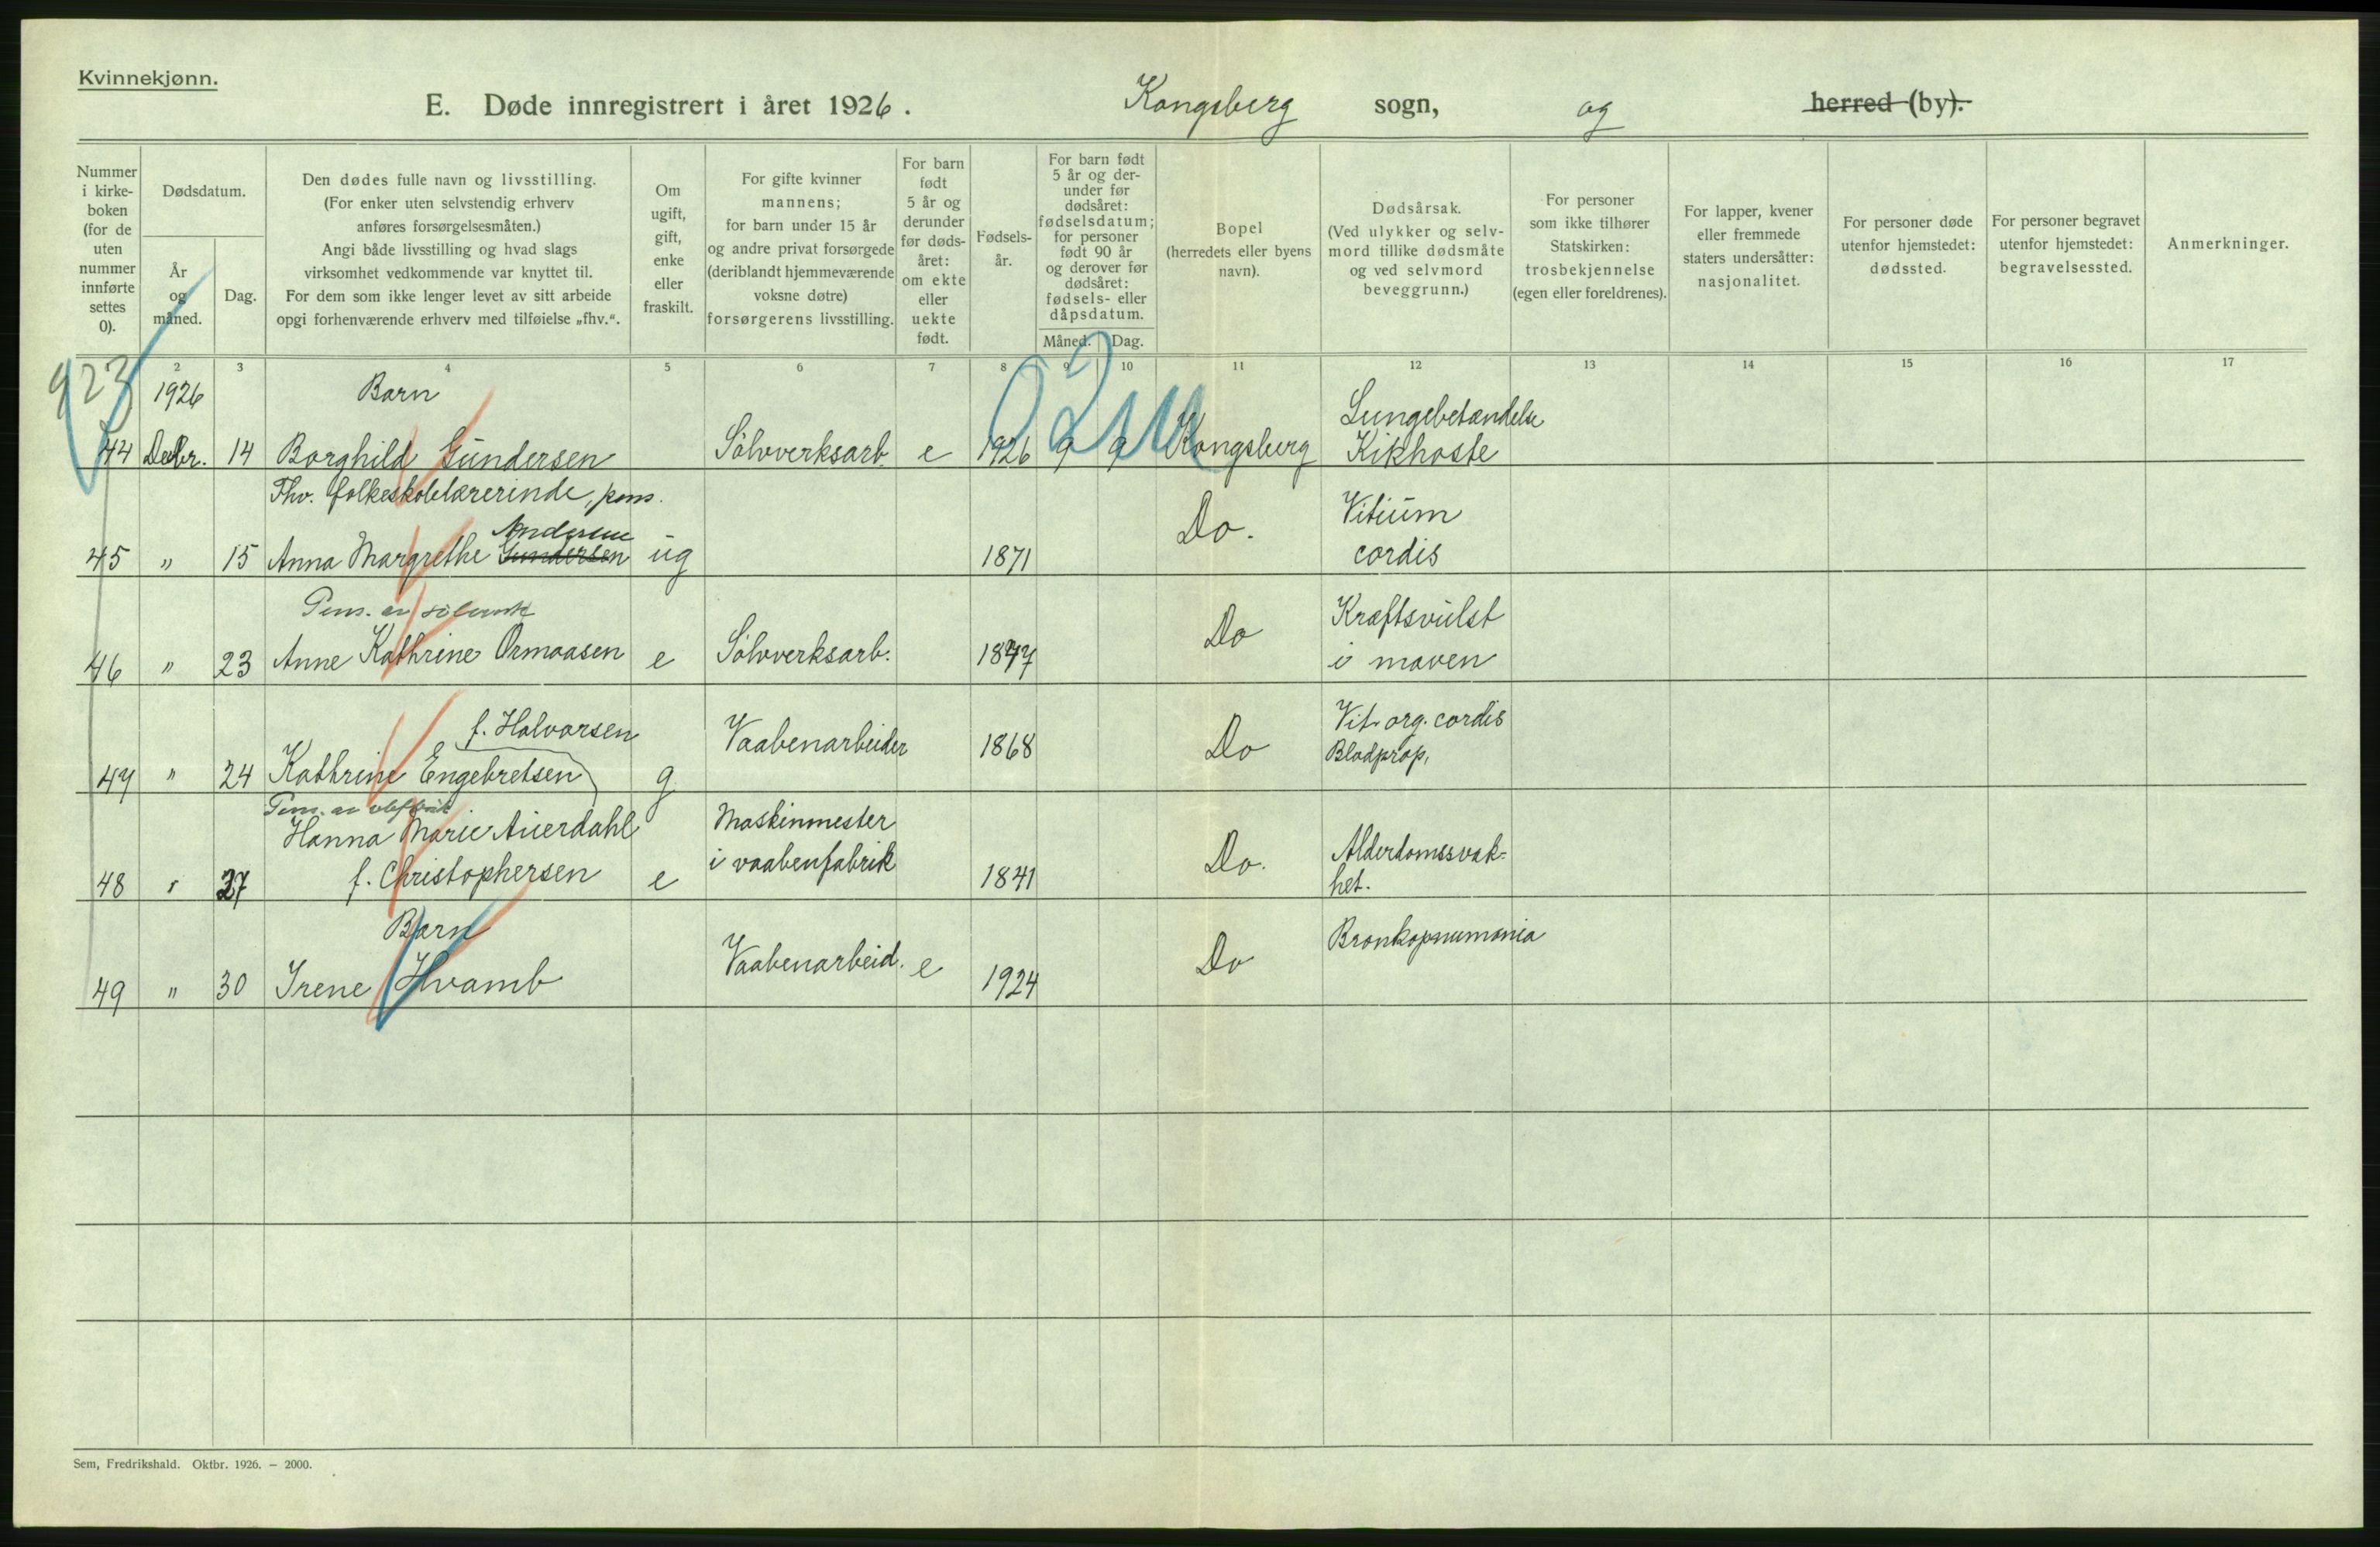 Kvinnekjønn.
E. Døde innregistrert i året 1926. Kongsberg sogn, og herred (by).
Nummer i kirke-boken (for de uten nummer innførte settes 0).
Dødsdatum.
År og måned.
Dag.
Den dødes fulle navn og livsstilling.
(For enker uten selvstendig erhverv
anføres forsørgelsesmåten.)
Angi både livsstilling og hvad slags
virksomhet vedkommende var knyttet til.
For dem som ikke lenger levet av sitt arbeide
opgi forhenværende erhverv med tilføielse „fhv.“.
Om ugift, gift, enke eller fraskilt.
For gifte kvinner
mannens;
for barn under 15 år
og andre privat forsørgede
(deriblandt hjemmeværende
voksne døtre)
forsørgerens livsstilling.
For barn født 5 år og derunder før døds-året: om ekte eller uekte født.
Fødsels-år.
For barn født
5 år og der-
under før
dødsåret:
fødselsdatum;
for personer
født 90 år
og derover før
dødsåret:
fødsels- eller
dåpsdatum.
Måned. Dag.
Bopel
(herredets eller byens
navn).
Dødsårsak.
(Ved ulykker og selv-
mord tillike dødsmåte
og ved selvmord
beveggrunn.)
For personer
som ikke tilhører
Statskirken:
trosbekjennelse
(egen eller foreldrenes).
For lapper, kvener
eller fremmede
staters undersåtter:
nasjonalitet.
For personer døde
utenfor hjemstedet:
dødssted.
For personer begravet
utenfor hjemstedet:
begravelsessted.
Anmerkninger.
2 3 4 5 6 7 8 9 10 11 12 13 14 15 16 17
923
1926 Barn Lungebetændelse
44 Decbr. 14 Borghild Gundersen Sølvverksarb. e 1926 9 9 Kongsberg Kikhoste
Fhv. folkeskolelærerinde, pens.
Andersen
45 " 15 Anna Margrethe Gundersen ug 1871 Do. Vitium
cordis
Pens. av sølvverk
46 " 23 Anne Kathrine Ormaasen e Sølvverksarb. 1847 Do Kræftsvulst
i maven
f. Halvorsen
47 " 24 Kathrine Engebretsen g Vaabenarbeider 1868 Do Vit. org. cordis
Blodprop,
Pens. av
Hanna Marie Auerdahl Maskinmester
48 " 27 f. Christophersen e i vaabenfabrik 1841 Do. Alderdomssvak-
het.
Barn
49 " 30 Irene Hvamb Vaabenarbeid. e 1924 Do Bronkopnumonia
Sem, Fredrikshald. Oktbr. 1926. — 2000.